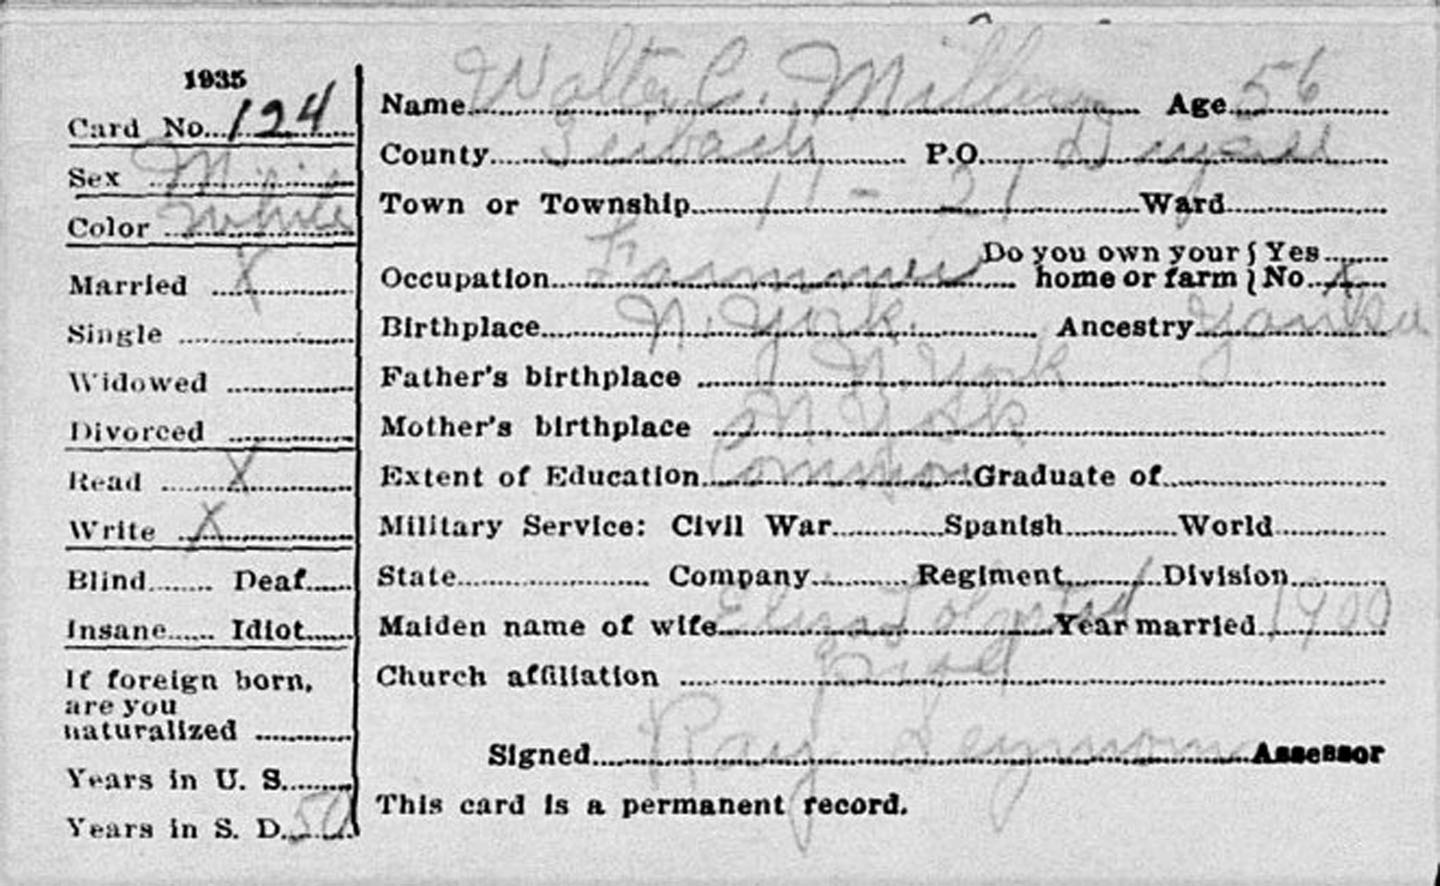 1935
Card No. 124
Sex Male
Color White
Married X
Single
Widowed
Divorced
Read X
Write X
Blind Deaf
Insane Idiot
If foreign born,
are you
naturalized
Years in U. S.
Years in S. D. 50
Name Walter C. Age 56
County P.O.
Town or Township 11 - 21 Ward
Do you own your { Yes
Occupation home or farm { No X
Birthplace N. York. Ancestry
Father's birthplace N. York
Mother's birthplace N York
Extent of Education Common Graduate of
Military Service: Civil War Spanish World
State Company Regiment Division
Maiden name of wife Year married 1900
Church affiliation
Signed Ray Assessor
This card is a permanent record.